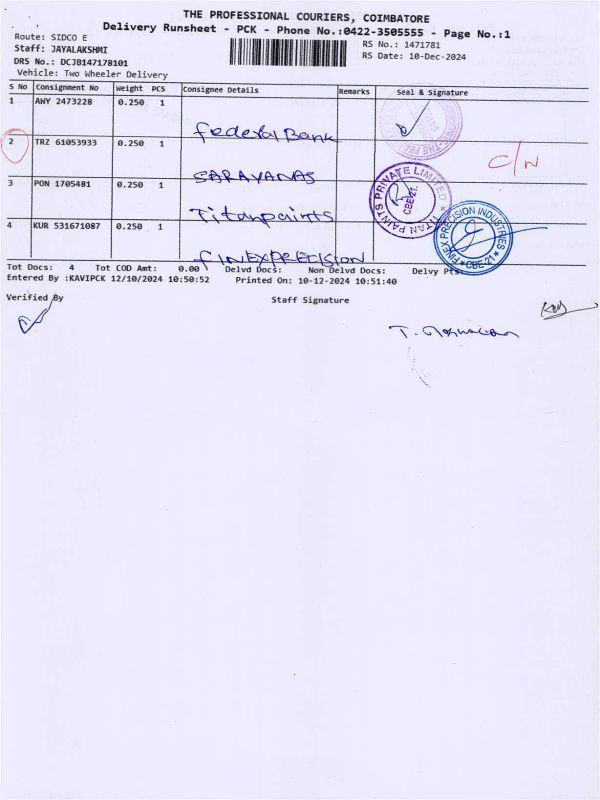 THE PROFESSIONAL COURIERS, COIMBATORE
Delivery Runsheet - PCK - Phone No.:0422-3505555 - Page No.:1
Route: SIDCO E
RS No.: 1471781
Staff: JAYALAKSHMI
RS Date: 10-Dec-2024
DRS No.: DCJB147178101
Vehicle: Two Wheeler Delivery
S No Consignment No Weight PCS Consignee Details Remarks Seal & Signature
1 AWY 2473228 0.250 1 Federal Bank
2 TRZ 61053933 0.250 1 SARAVANAS C/N
3 PON 1705481 0.250 1 Titanpaints
TITAN PAINTS PRIVATE LIMITED
CBE-21.
4 KUR 531671087 0.250 1 FINEXPRECISION
FINEX PRECISION INDUSTRIES
CBE-21
Tot Docs: 4 Tot COD Amt: 0.00 Delvd Docs: Non Delvd Docs: Delvy Pts:
Entered By :KAVIPCK 12/10/2024 10:50:52 Printed On: 10-12-2024 10:51:40
Verified By
Staff Signature